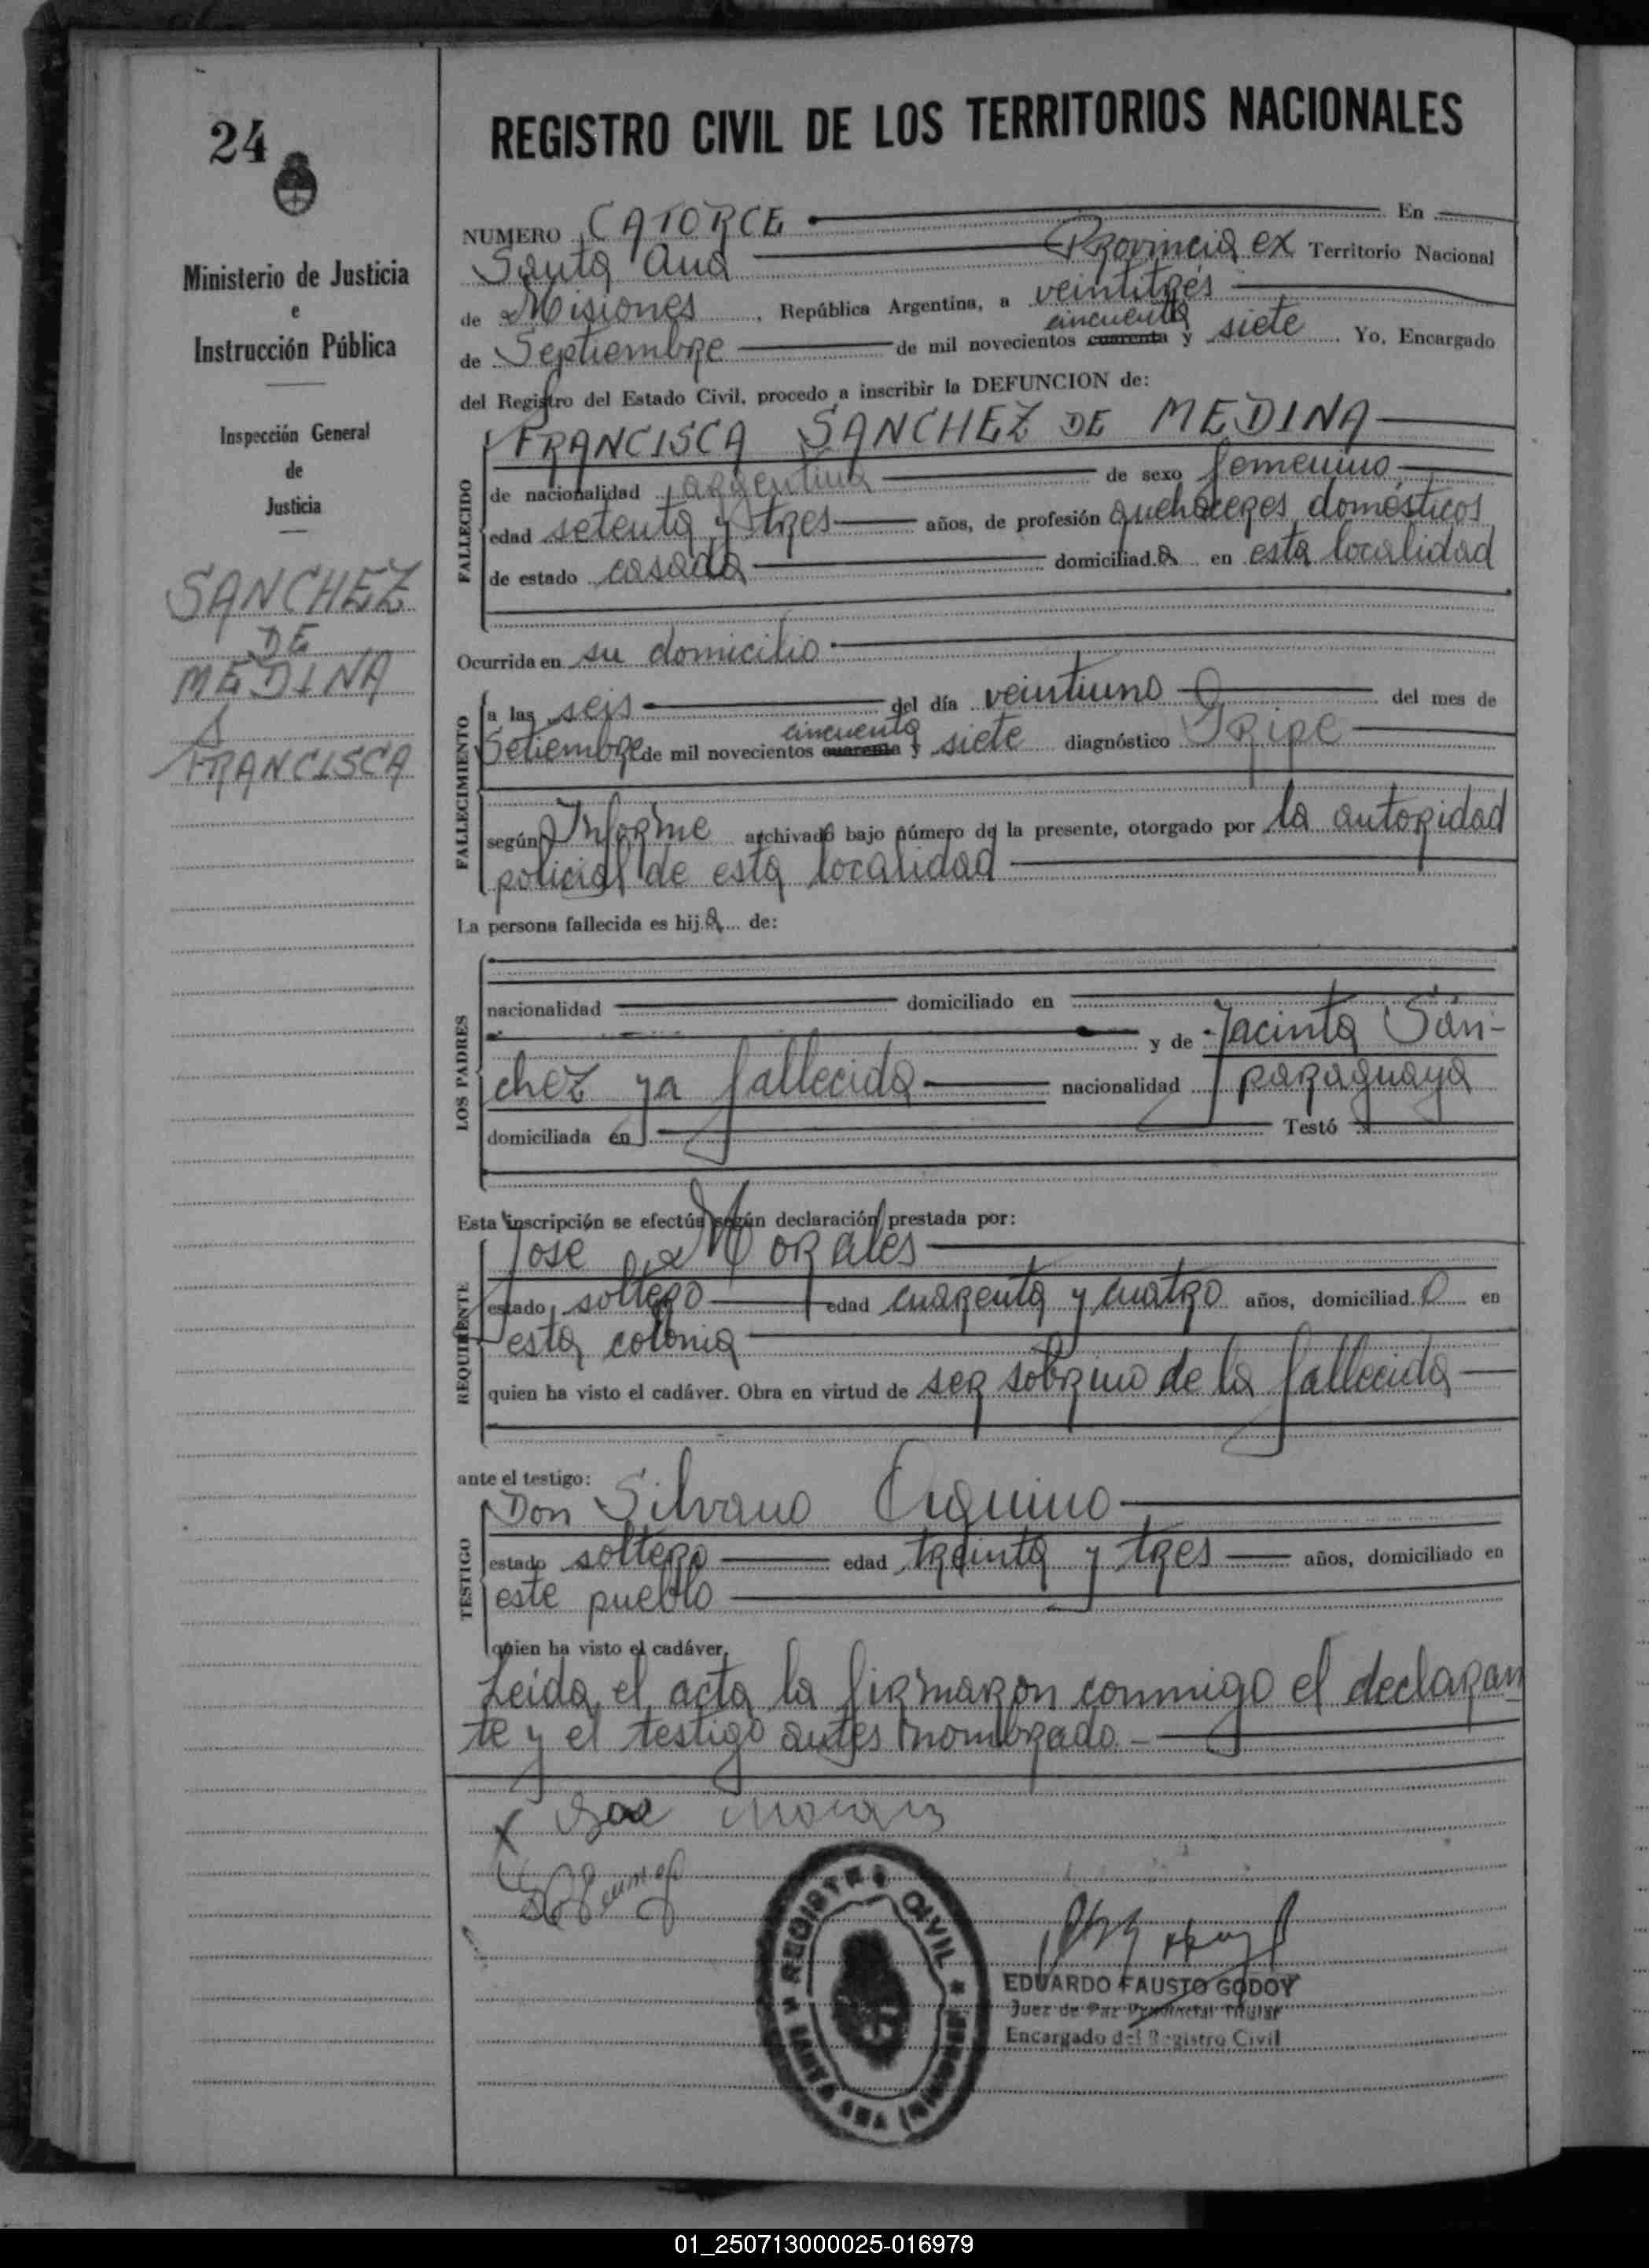 24
Ministerio de Justicia
e
Instrucción Pública
Inspección General
de
Justicia
SANCHEZ
DE
MEDINA
FRANCISCA
REGISTRO CIVIL DE LOS TERRITORIOS NACIONALES
NUMERO CATORCE En
Santa Ana Provincia ex Territorio Nacional
de Misiones, República Argentina, a veintitrés
cincuenta
de Septiembre de mil novecientos cuarenta y siete. Yo, Encargado
del Registro del Estado Civil, procedo a inscribir la DEFUNCION de:
FALLECIDO
FRANCISCA SANCHEZ DE MEDINA
de nacionalidad argentina de sexo femenino
edad setenta y tres años, de profesión quehaceres domésticos
de estado casada domiciliada en esta localidad
Ocurrida en su domicilio
FALLECIMIENTO
a las seis del día veintiuno del mes de
cincuenta
Setiembre de mil novecientos cuarenta y siete diagnóstico Gripe
según Informe archivado bajo número de la presente, otorgado por la autoridad
policial de esta localidad
La persona fallecida es hija de:
LOS PADRES
nacionalidad domiciliado en
y de Jacinta Sán-
chez ya fallecida nacionalidad paraguaya
domiciliada en Testó
Esta inscripción se efectúa según declaración prestada por:
REQUIRENTE
Jose Morales
estado soltero edad cuarenta y cuatro años, domiciliado en
esta colonia
quien ha visto el cadáver. Obra en virtud de ser sobrino de la fallecida
ante el testigo:
TESTIGO
Don Silvano
estado soltero edad treinta y tres años, domiciliado en
este pueblo
quien ha visto el cadáver.
Leida el acta la firmaron conmigo el declaran
te y el testigo antes nombrado.-
x Jose Morales
REGISTRO CIVIL
SANTA ANA (MISIONES)
EDUARDO FAUSTO GODOY
Juez de Paz Provincial Titular
Encargado del Registro Civil
01_250713000025-016979